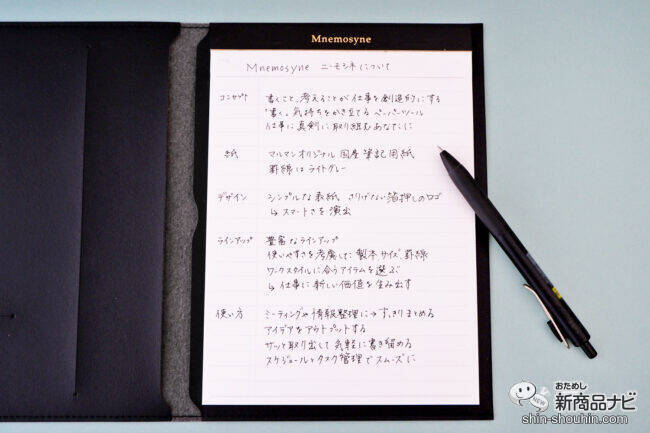 Mnemosyne
Mnemosyne ニーモシネについて
コンセプト 書くこと、考えることが仕事を創造的にする
「書く」気持ちをかき立てる ペーパーツール
仕事に真剣に取り組むあなたに
紙 マルマンオリジナル 国産 筆記用紙
罫線はライトグレー
デザイン シンプルな表紙 さりげない箔押しのロゴ
↳ スマートさを演出
ラインアップ 豊富なラインアップ
使いやすさを考慮した製本サイズ、罫線
ワークスタイルに合うアイテムを選ぶ
↳ 仕事に新しい価値を生み出す
使い方 ミーティングや情報整理に→すっきりまとめる
アイデアをアウトプットする
サッと取り出して気軽に書き留める
スケジュールとタスク管理でスムーズに
おためし
新商品ナビ
NEW
shin-shouhin.com